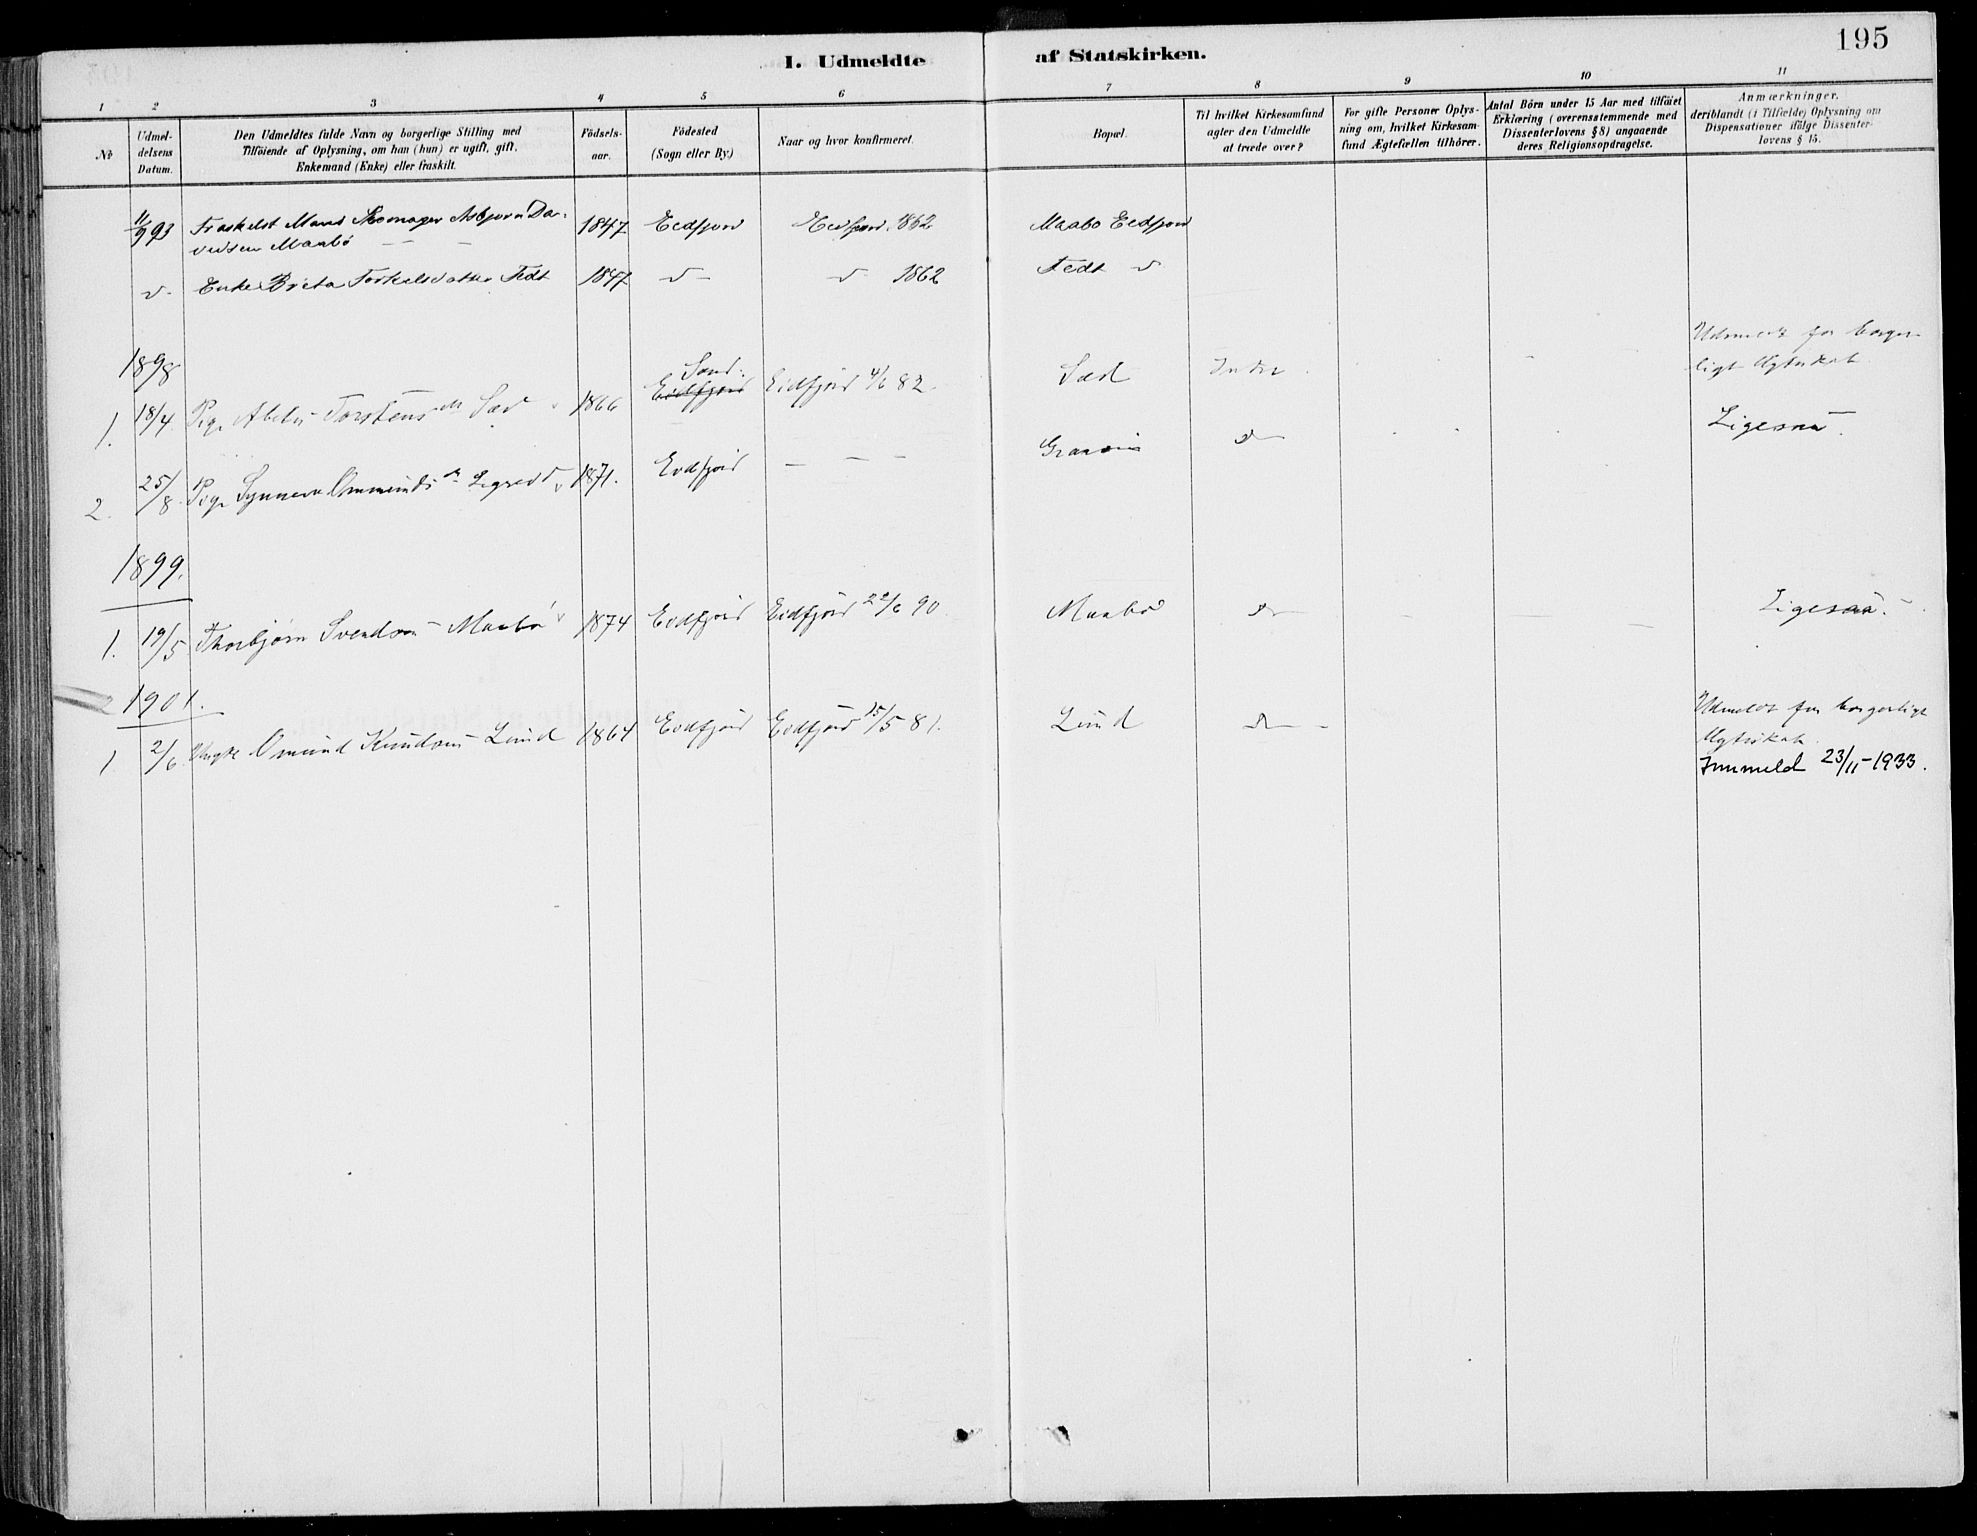 195
I. Udmeldte af Statskirken.
1 2 3 4 5 6 7 8 9 10 11
No
Udmel-
delsens
Datum.
Den Udmeldtes fulde Navn og borgerlige Stilling med
Tilföiende af Oplysning, om han (hun) er ugift, gift,
Enkemand (Enke) eller fraskilt.
Födsels-
aar.
Födested
(Sogn eller By.)
Naar og hvor konfirmeret.
Bopæl.
Til hvilket Kirkesamfund
agter den Udmeldte
at træde over?
For gifte Personer Oplys-
ning om, hvilket Kirkesam-
fund Ægtefællen tilhörer.
Antal Börn under 15 Aar med tilföiet
Erklæring (overensstemmende med
Dissenterlovens § 8) angaaende
deres Religionsopdragelse.
Anmærkninger,
deriblandt (i Tilfælde) Oplysning om
Dispensationer ifölge Dissenter-
lovens § 15.
11/9 93 Fraskilt Mand Skomager Asbjørn Da- 1847 Eidfjord Eidfjord 1862 Maabø Eidfjord
vidsen Maabø
Enke Brita Torkelsdatter Tedt 1847 1862 Tedt
1898
Udmeldt for borger-
ligt Ægteskab
1. 18/4 Pige Torstensdtr Sæd 1866 Eidfjord Eidfjord 4/6 82 Sæd
Ligesaa
2. 25/8 Pige Synneve Ommundsdr Legreid 1871. Eidfjord Graven
1899.
1. 19/5 Thorbjørn Svendsen Maabø 1874 Eidfjord Eidfjord 22/6 90 Maabø Ligesaa.
1901.
1. 2/6 Osmund Knudsen Lund 1864 Eidfjord Eidfjord 15/5 81. Lund Udmeldt for borgerligt
Ægteskab.
Innmeld 23/11-1933.